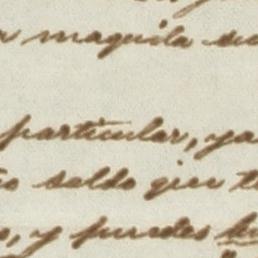 a maquila su
particular, ya
saldo que t
, y puedes